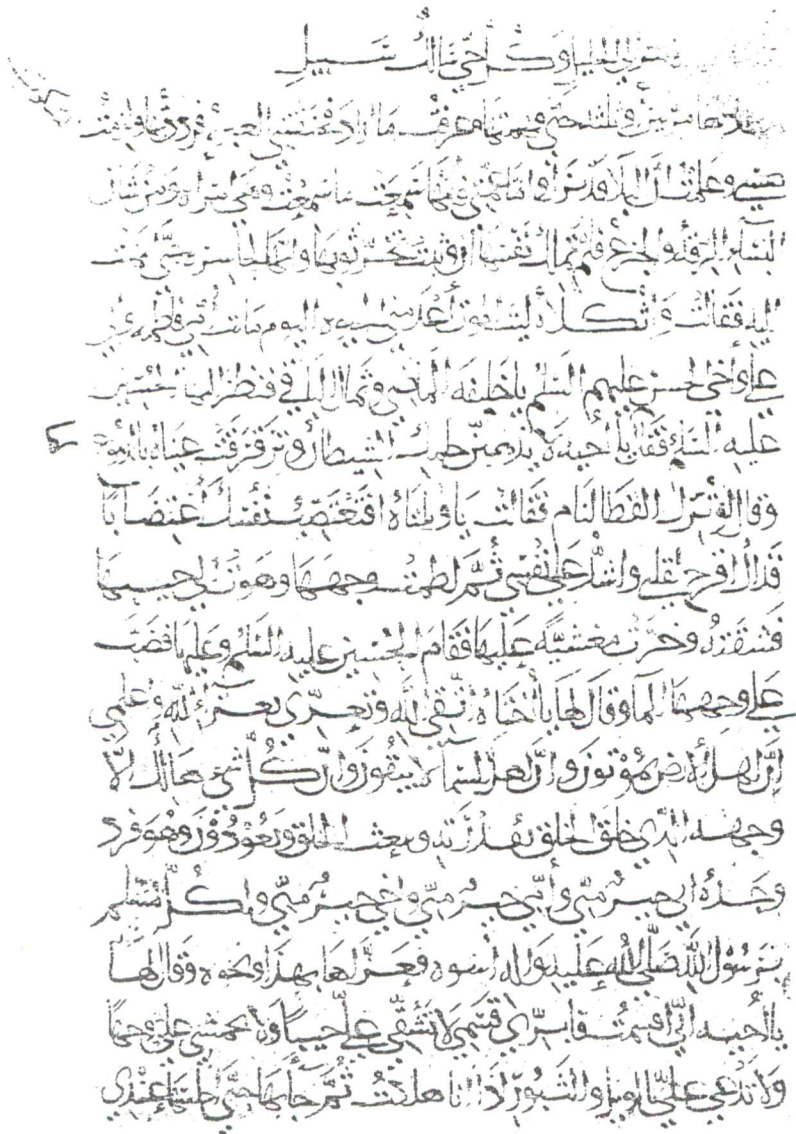 الى الجليل وكل حي سالك سبيلي
مرتين او ثلثا حتى فهمتها وعرفت ما اراد فخنقتني العبرة فرددتها
وعلمت ان البلا قد نزل واما عمتي فانها سمعت ما سمعت وهي امراة ومن شان
النساء الرقة والجزع فلم تملك نفسها ان وثبت تجر ثوبها وانها لحاسرة حتى انتهت
اليه فقالت واثكلاه ليت الموت أعدمني الحيوة اليوم ماتت أمي فاطمة وابي
علي وأخي الحسن عليهم السلم يا خليفة الماضي وثمال الباقي فنظر اليها الحسين
عليه السلم فقال يا أخيه لا يذهبن حلمك الشيطان وترقرقت عيناه بالدموع
وقال لو ترك القطا لنام فقالت يا ويلتاه افتغتصب نفسك أغتصابا
فذاك اقرح لقلبي واشد على نفسي ثم لطمت وجهها وهوت الى جيبها
فشقته وخرت مغشية عليها فقام الحسين عليه السلم وعليها فصب
علي وجهها الما وقال لها يا أختاه اتقي الله وتعزي بعزاء الله واعلمي
ان اهل الأرض يموتون وان اهل السمآ لا يبقون وان كل شئ هالك الا
وجهه الذي خلق الخلق بقدرته ويبعث الخلق ويعودون وهو فرد
وحده ابي خير مني وأمي خير مني واخي خير مني ولكل مسلم
برسول الله صلى الله عليه واله أسوه فعزاها بهذا ونحوه وقال لها
يا أخيه اني اقسمت فابري قسمي لا تشقي علي جيبا ولا تخمشي علي وجها
ولا تدعي علي بالويل والثبور اذا انا هلكت ثم جآ بها حتى أجلسها عندي